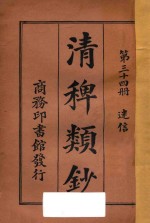 第三十四冊　迷信
清稗類鈔
商務印書館發行